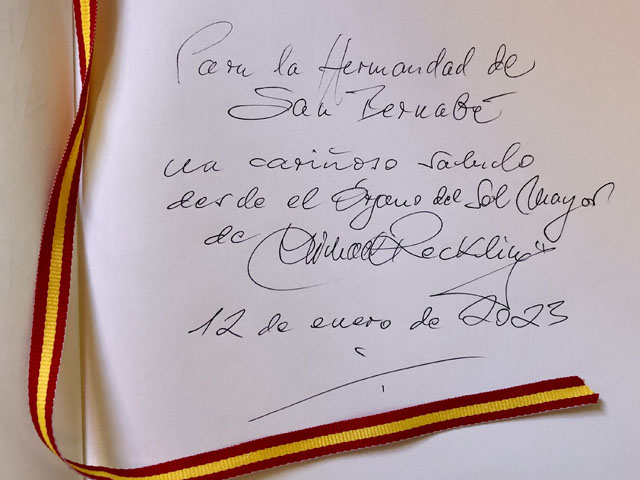 Para la Hermandad de
San Bernabé
un cariñoso saludo
desde el Órgano del Sol Mayor
de Michael Reckling
12 de enero de 2023